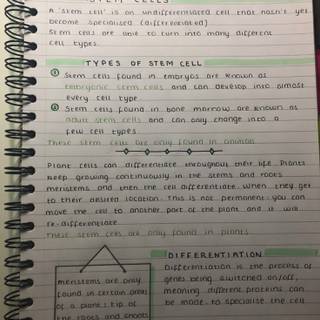 STEM CELLS
A 'stem cell' is an undifferentiated cell that hasn't yet
become specialised (differentiated)
Stem cells are able to turn into many different
cell types.
TYPES OF STEM CELL
① Stem cells found in embryos are known as
embryonic stem cells and can develop into almost
every cell type.
② Stem cells found in bone marrow are known as
adult stem cells and can only change into a
few cell types.
These stem cells are only found in animals
Plant cells can differentiate throughout their life. Plants
keep growing continuously in the stems and roots
meristems and then the cell differentiate when they get
to their desired location. This is not permanent: you can
move the cell to another part of the plant and it will
re-differentiate.
These stem cells are only found in plants.
DIFFERENTIATION
Differentiation is the process of
genes being switched on/off,
meaning different proteins can
be made to specialise the cell.
meristems are only
found in certain areas
of a plant: tip of
the roots and shoots